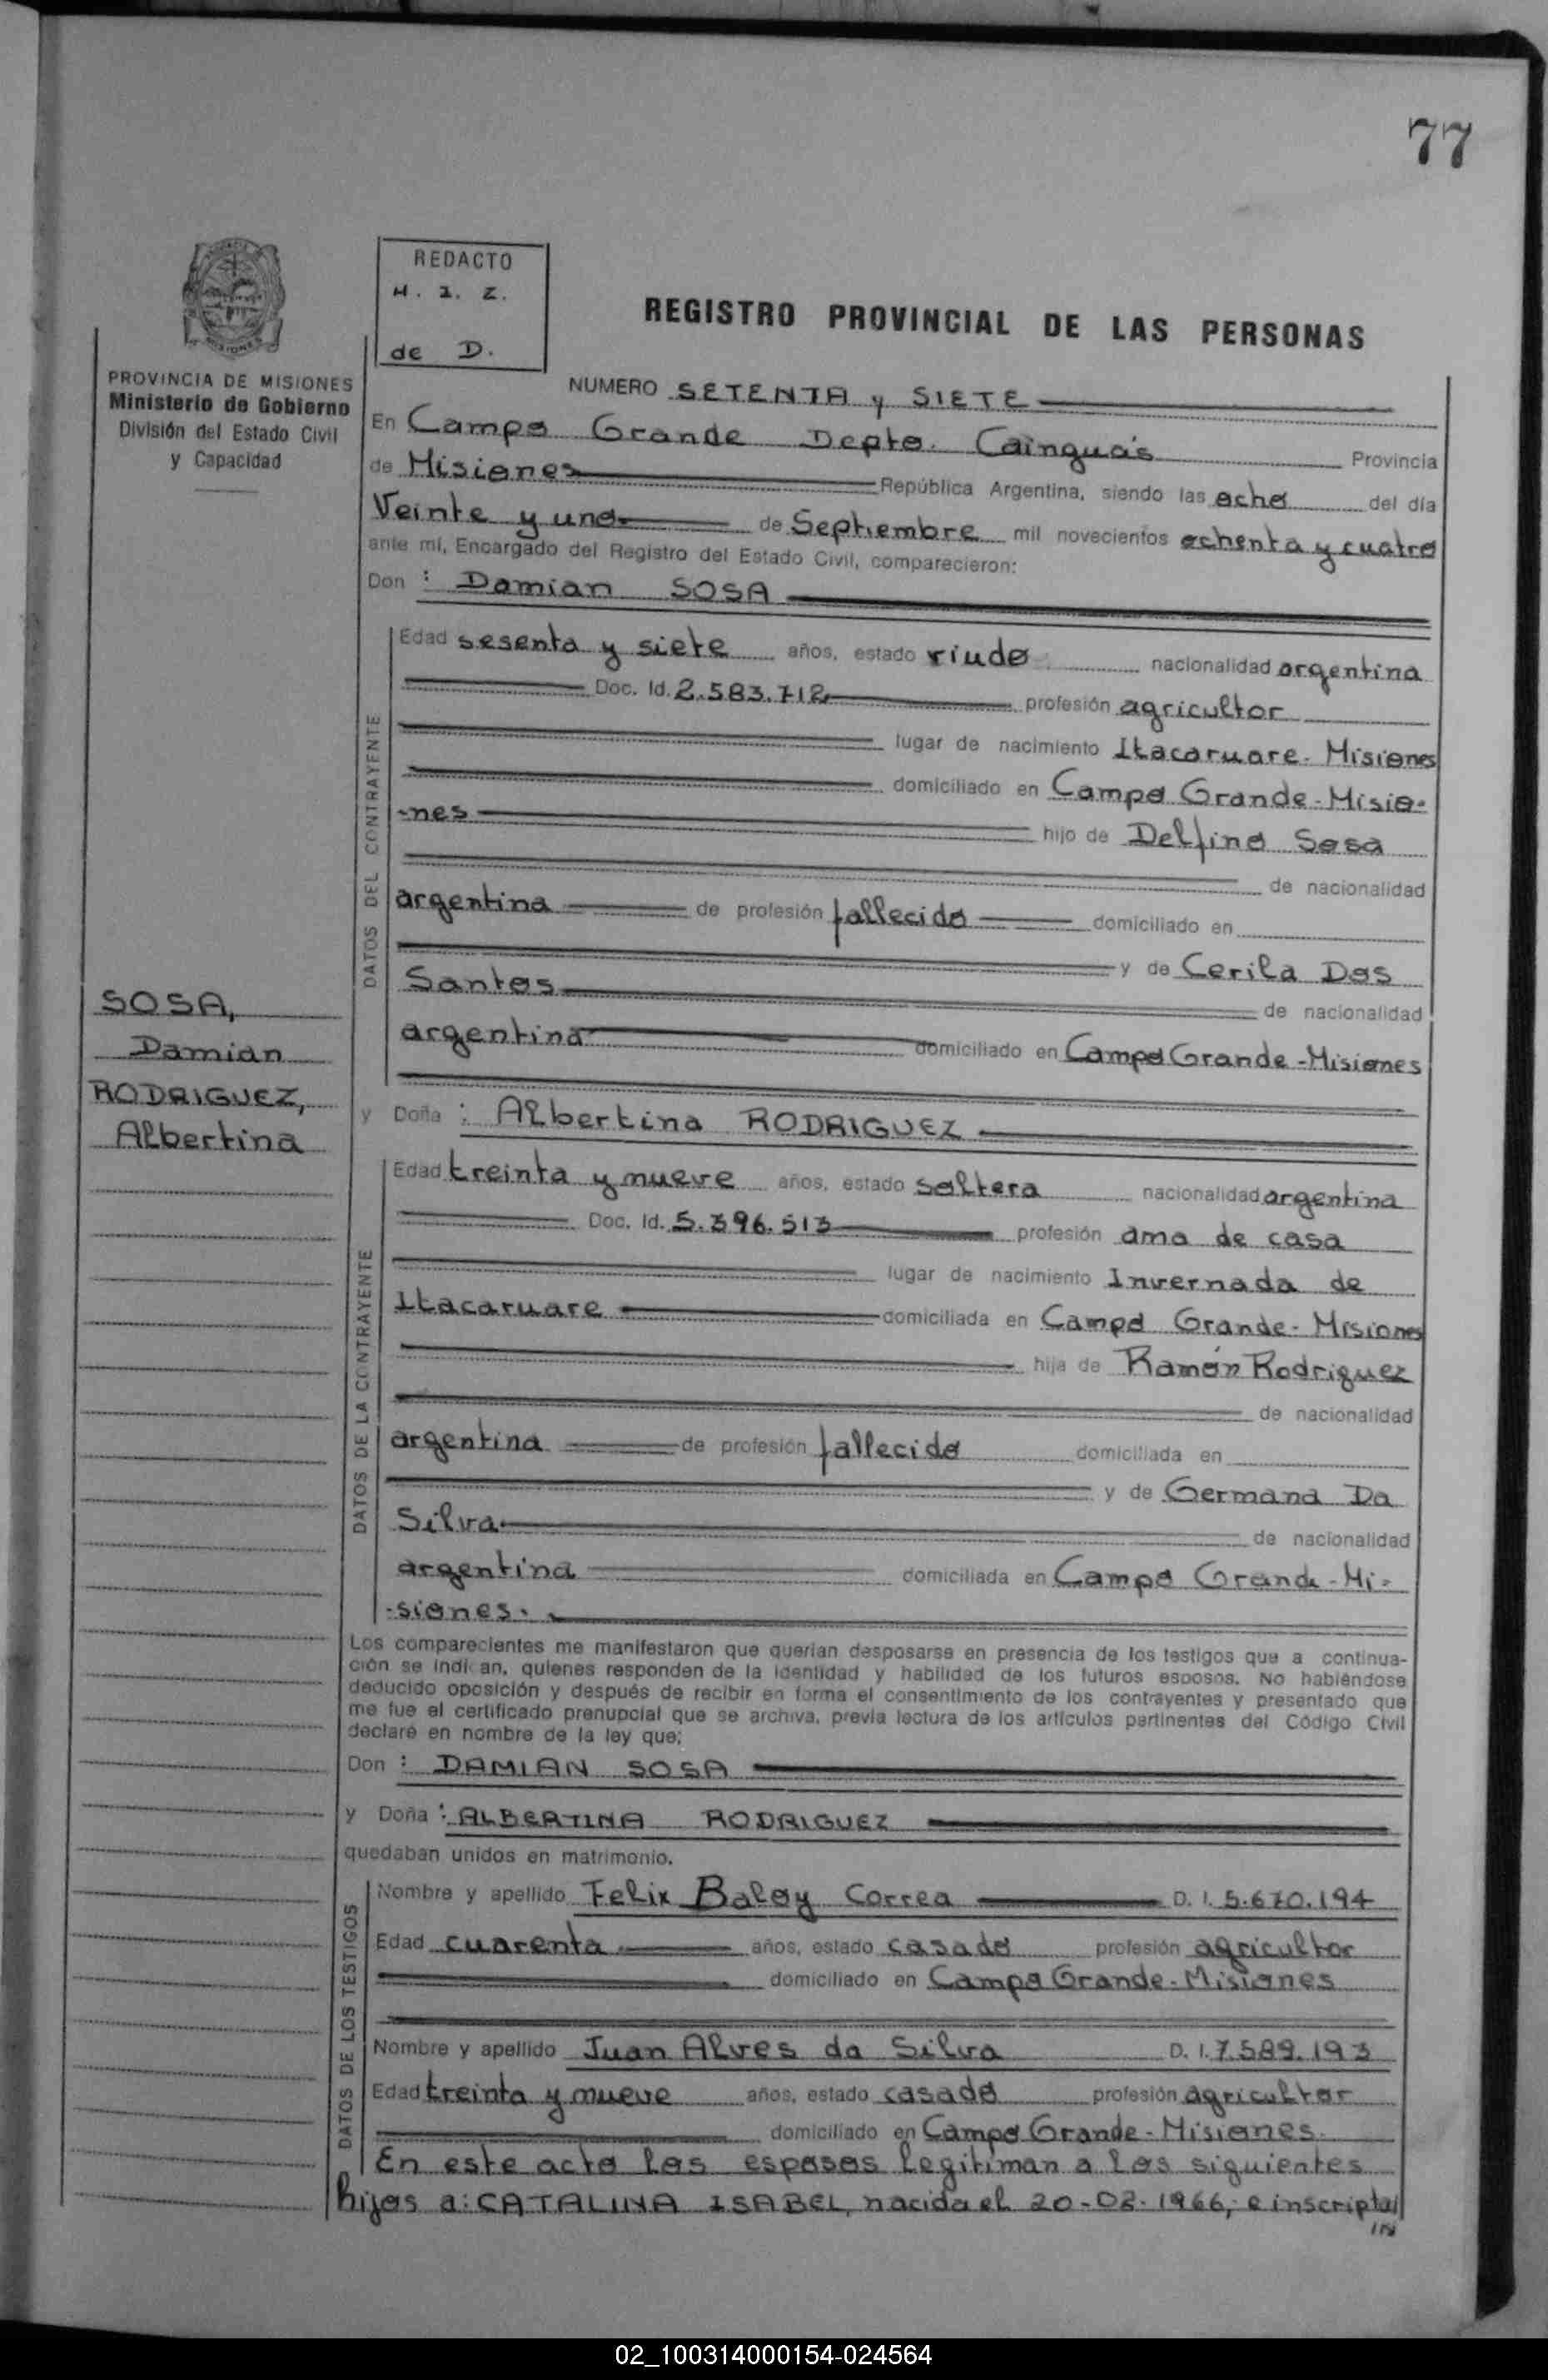 77
REDACTO
H. I. Z.
de D.
REGISTRO PROVINCIAL DE LAS PERSONAS
PROVINCIA DE MISIONES
Ministerio de Gobierno
División del Estado Civil
y Capacidad
NUMERO SETENTA y SIETE
En Campo Grande Depto. Cainguás Provincia
de Misiones República Argentina, siendo las ocho del día
Veinte y uno de Septiembre mil novecientos ochenta y cuatro
ante mí, Encargado del Registro del Estado Civil, comparecieron:
Don : Damian SOSA
DATOS DEL CONTRAYENTE
Edad sesenta y siete años, estado viudo nacionalidad argentina
Doc. Id. 2.583.712 profesión agricultor
lugar de nacimiento Itacaruare - Misiones
domiciliado en Campo Grande - Misio-
-nes hijo de Delfino Sosa
de nacionalidad
argentina de profesión fallecido domiciliado en
y de Cerila Dos
Santos de nacionalidad
argentina domiciliado en Campo Grande - Misiones
SOSA,
Damian
RODRIGUEZ,
Albertina
y Doña : Albertina RODRIGUEZ
DATOS DE LA CONTRAYENTE
Edad treinta y nueve años, estado soltera nacionalidad argentina
Doc. Id. 5.396.513 profesión ama de casa
lugar de nacimiento Invernada de
Itacaruare domiciliada en Campo Grande - Misiones
hija de Ramón Rodriguez
de nacionalidad
argentina de profesión fallecido domiciliada en
y de Germana Da
Silva de nacionalidad
argentina domiciliada en Campo Grande - Mi-
-siones.
Los comparecientes me manifestaron que querían desposarse en presencia de los testigos que a continua-
ción se indican, quienes responden de la identidad y habilidad de los futuros esposos. No habiéndose
deducido oposición y después de recibir en forma el consentimiento de los contrayentes y presentado que
me fue el certificado prenupcial que se archiva, previa lectura de los artículos pertinentes del Código Civil
declaré en nombre de la ley que:
Don : DAMIAN SOSA
y Doña : ALBERTINA RODRIGUEZ
quedaban unidos en matrimonio.
DATOS DE LOS TESTIGOS
Nombre y apellido Felix Baloy Correa D. I. 5.670.194
Edad cuarenta años, estado casado profesión agricultor
domiciliado en Campo Grande - Misiones
Nombre y apellido Juan Alves da Silva D. I. 7.589.193
Edad treinta y nueve años, estado casado profesión agricultor
domiciliado en Campo Grande - Misiones.
En este acto los esposos legitiman a los siguientes
hijos a: CATALINA ISABEL, nacida el 20-02-1966, e inscripta
02_100314000154-024564